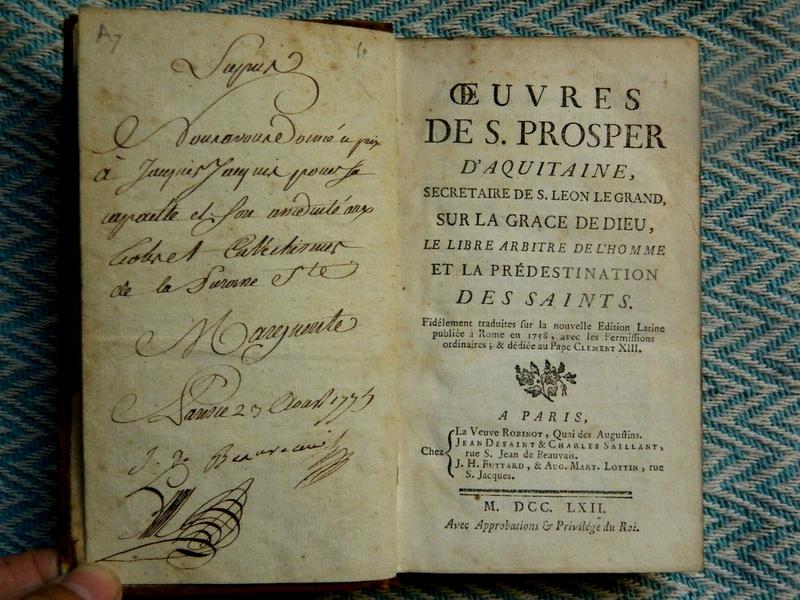 A7
à Jacques Jacquin pour sa
et son assiduité aux
Catechismes
de la Paroisse Ste
Marguerite
23 Aoust 1775
ŒUVRES
DE S. PROSPER
D'AQUITAINE,
SECRETAIRE DE S. LEON LE GRAND,
SUR LA GRACE DE DIEU,
LE LIBRE ARBITRE DE L'HOMME
ET LA PRÉDESTINATION
DES SAINTS.
Fidélement traduites sur la nouvelle Edition Latine
publiée à Rome en 1758, avec les Permissions
ordinaires; & dédiée au Pape CLEMENT XIII.
A PARIS,
Chez
La Veuve ROBINOT, Quai des Augustins.
JEAN DESAINT & CHARLES SAILLANT,
rue S. Jean de Beauvais.
J. H. BUTTARD, & AUG. MART. LOTTIN, rue
S. Jacques.
M. DCC. LXII.
Avec Approbations & Privilége du Roi.